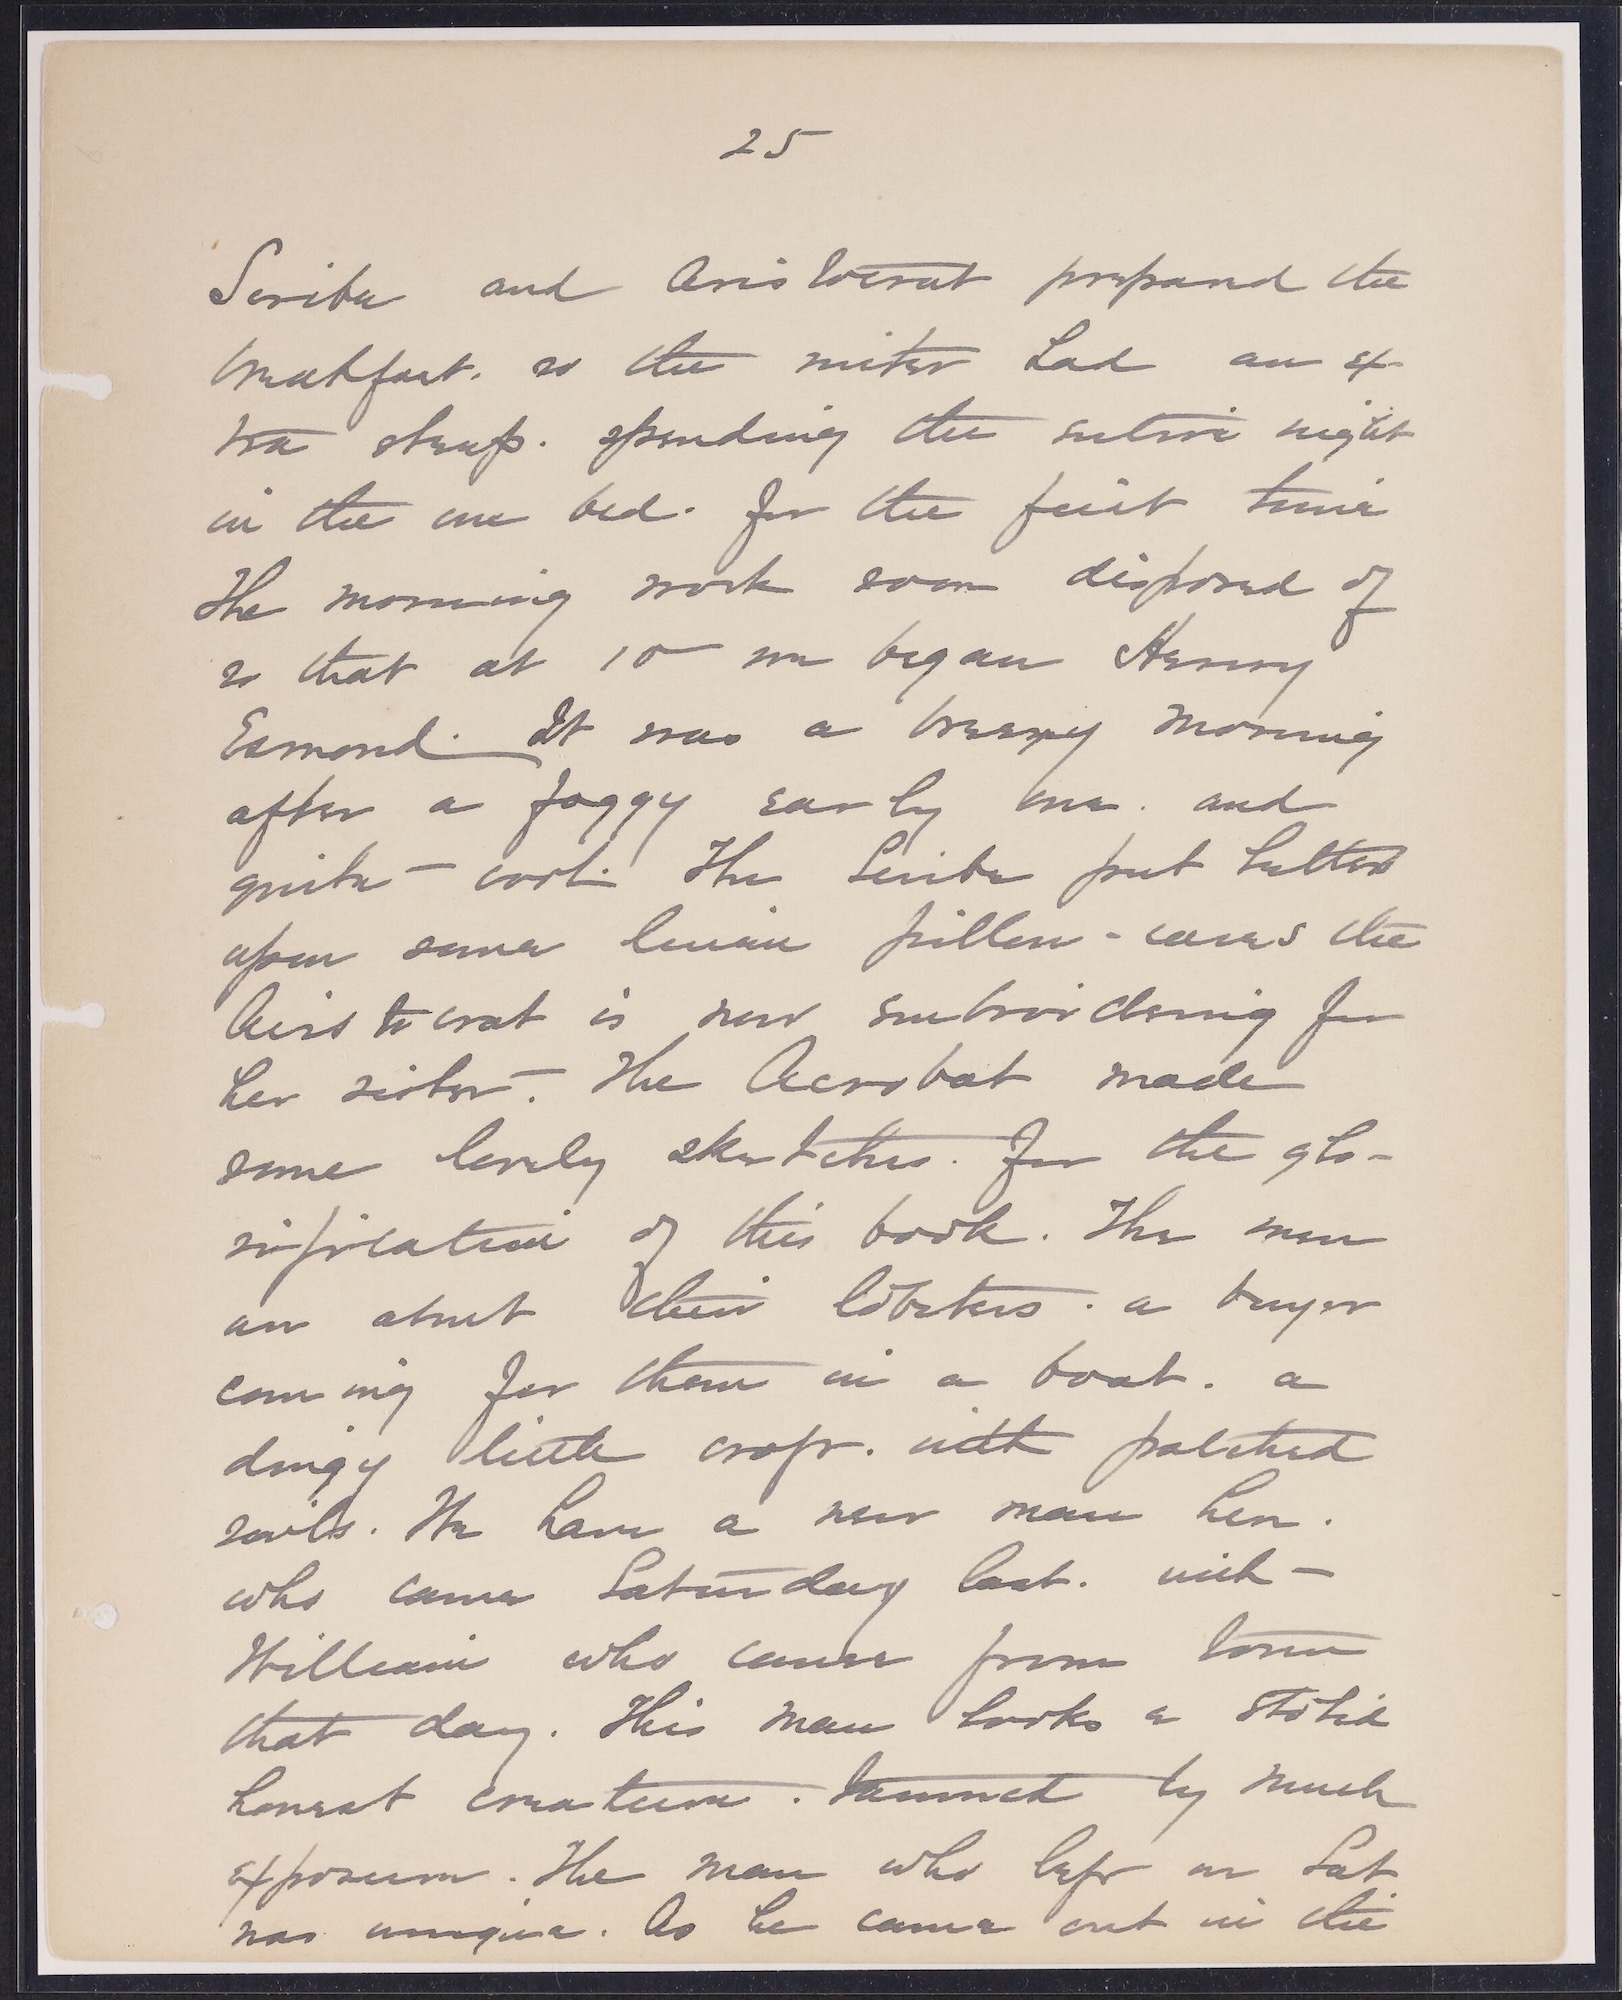 25
Scribe and Aristocrat prepared the
breakfast. so the writer had an ex-
tra sleep. spending the entire night
in the one bed. for the first time
The morning work soon disposed of
so that at 10 we began Henry
Esmond. It was a breezy morning
after a foggy early one. and
quite - cool. The Scribe put letters
upon some linen pillow-cases the
Aristocrat is now embroidering for
her sister-. The Acrobat made
some lovely sketches. for the glo-
rification of this book. The men
are about their lobsters. a buyer
coming for them in a boat. a
dingy little craft. with patched
sails. We have a new man here.
who came Saturday last. with -
William who came from town
that day. This man looks a stolid
honest creature. tanned by much
exposure. The man who left on Sat
was unique. As he came out in the